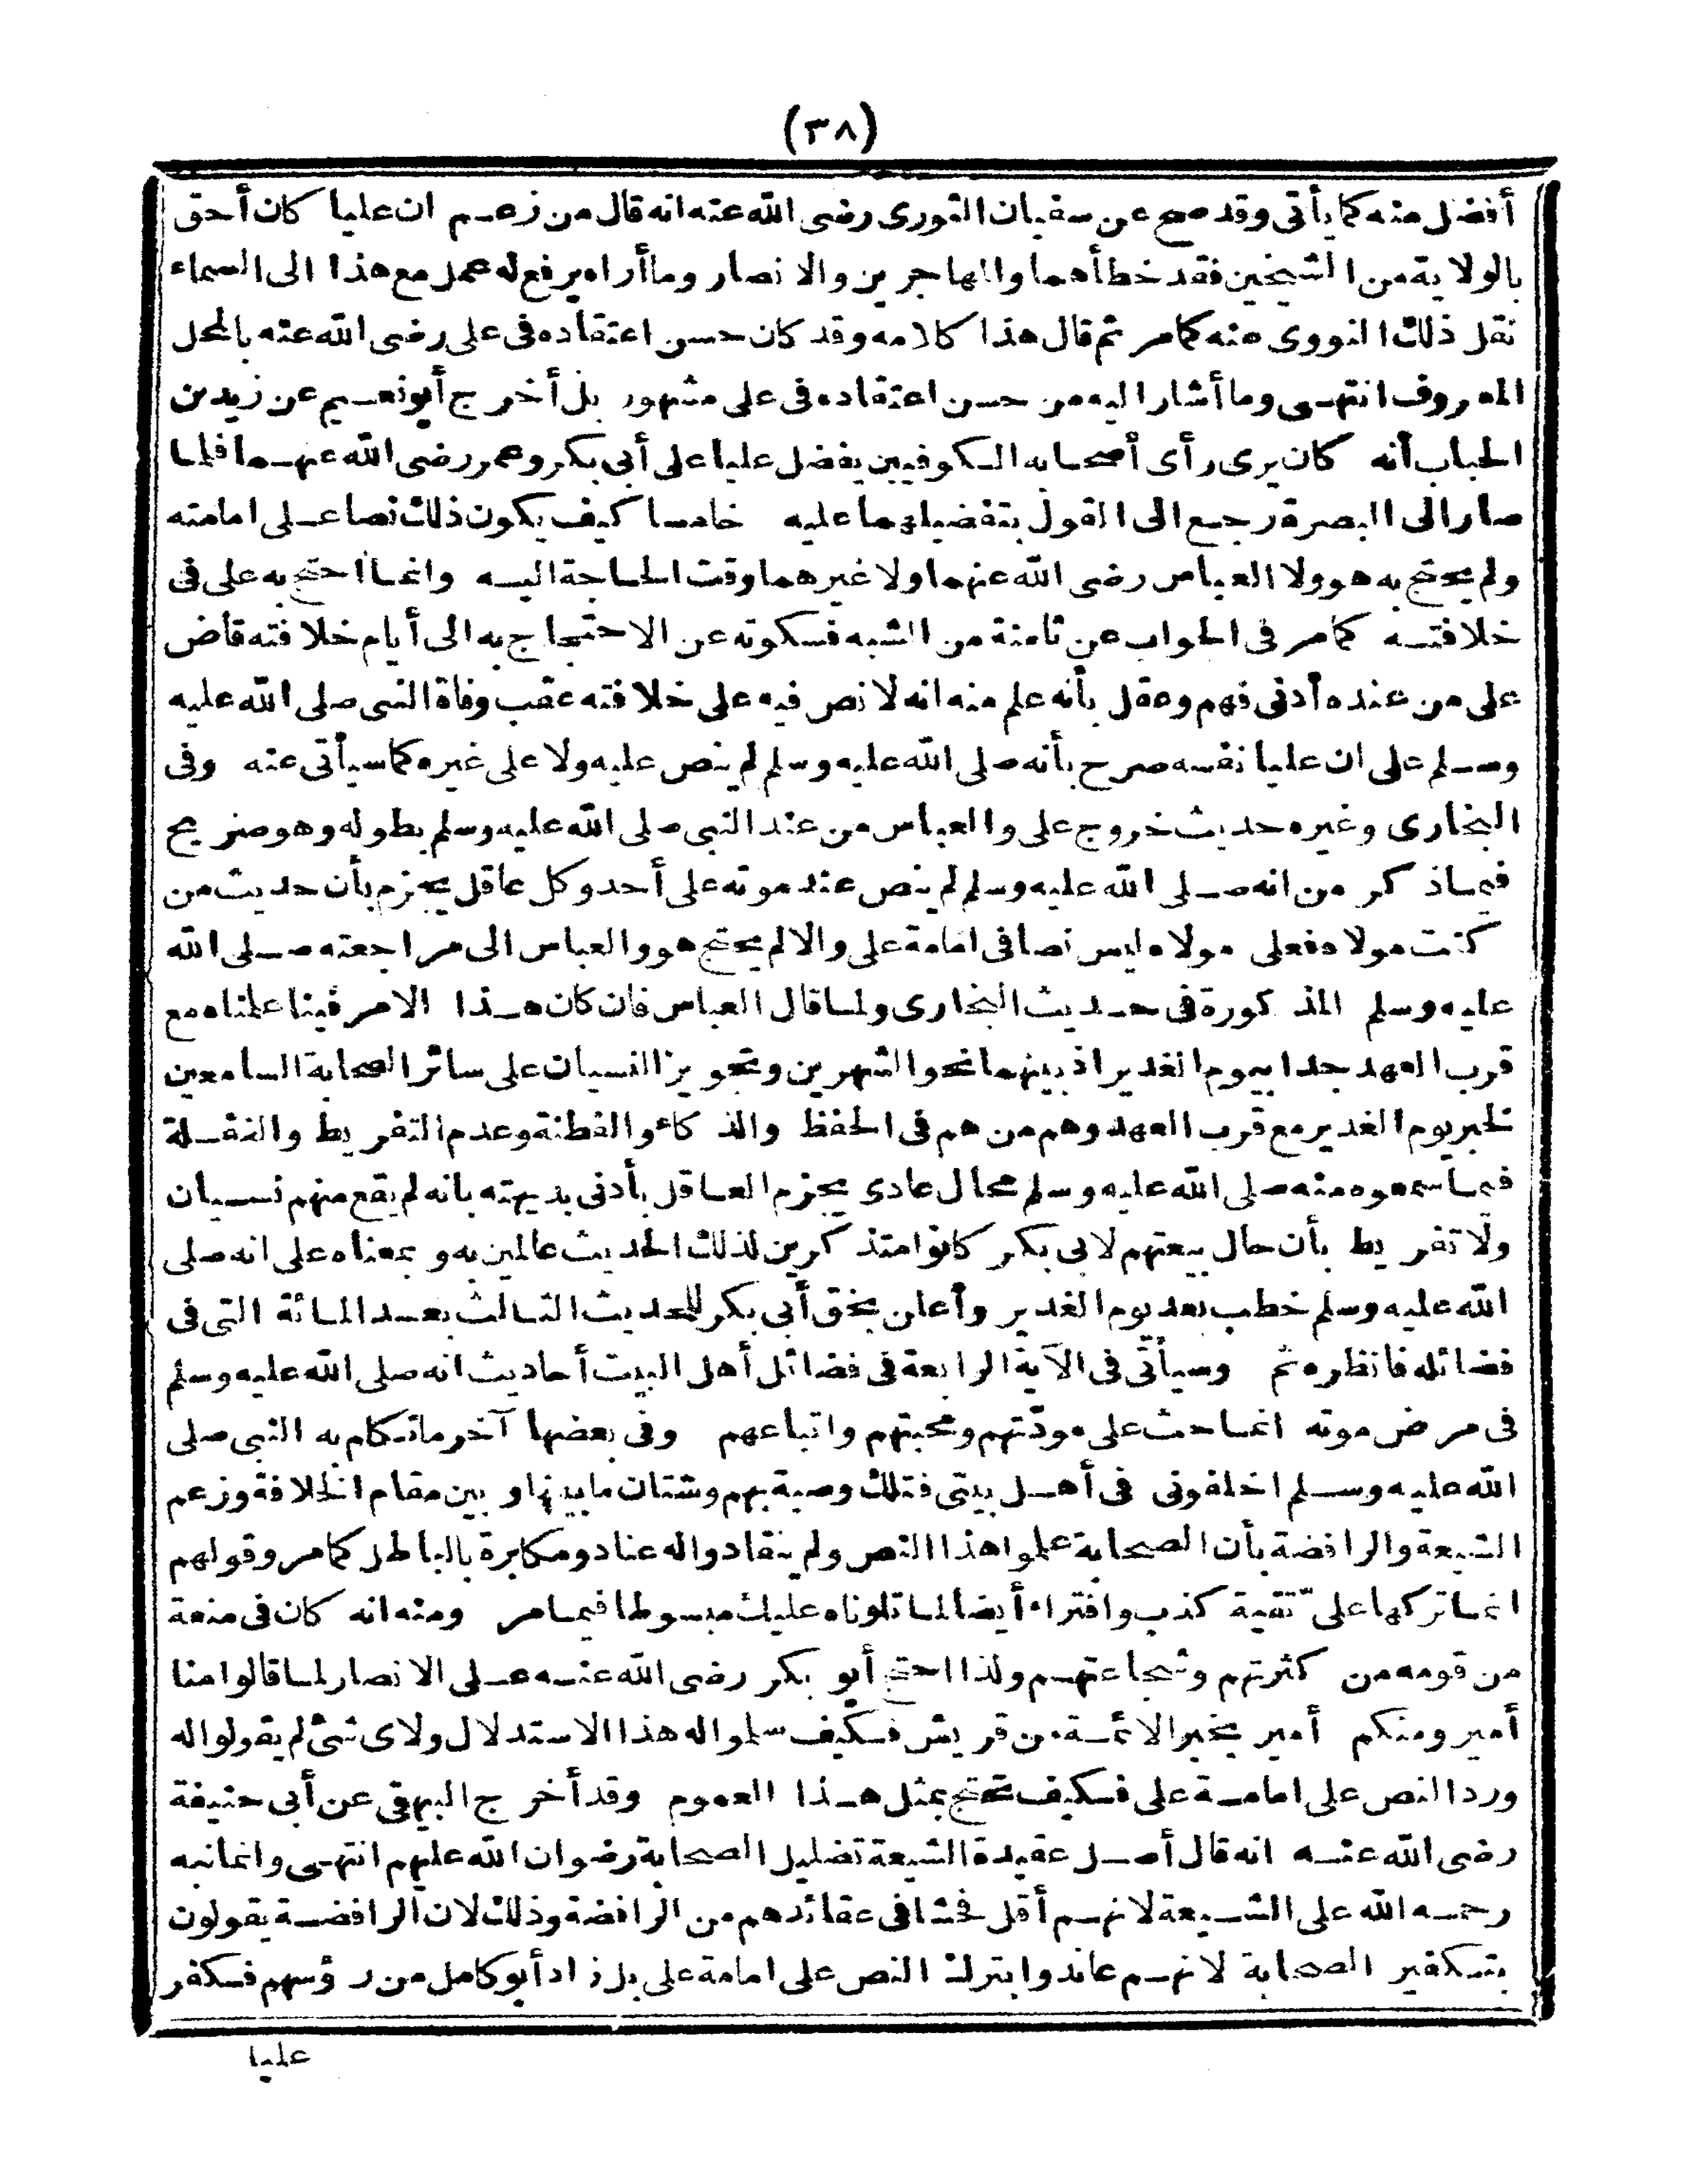 (٣٨)
أفضل منه كما يأتى وقد صح عن سفيان الثورى رضى الله عنه انه قال من زعم ان عليا كان أحق
بالولاية من الشيخين فقد خطأهما والمهاجرين والانصار وما أراه يرفع له عمل مع هذا الى السماء
نقل ذلك النووى عنه كما مر ثم قال هذا كلامه وقد كان حسن اعتقاده فى على رضى الله عنه بالمحل
المعروف انتهى وما أشار اليه من حسن اعتقاده فى على مشهور بل أخرج أبو نعيم عن زيد بن
الحباب أنه كان يرى رأى أصحابه الكوفيين يفضل عليا على أبى بكر وعمر رضى الله عنهما فلما
صار الى البصرة رجع الى القول بتفضيلهما عليه خامسا كيف يكون ذلك نصا على امامته
ولم يحتج به هو ولا العباس رضى الله عنهما ولا غيرهما وقت الحاجة اليه وانما احتج به على فى
خلافته كما مر فى الجواب عن ثامنة من الشبه فسكوته عن الاحتجاج به الى أيام خلافته قاض
على من عنده أدنى فهم وعقل بأنه علم منه انه لا نص فيه على خلافته عقب وفاة النبى صلى الله عليه
وسلم على ان عليا نفسه صرح بأنه صلى الله عليه وسلم لم ينص عليه ولا على غيره كما سيأتى عنه وفى
البخارى وغيره حديث خروج على والعباس من عند النبى صلى الله عليه وسلم بطوله وهو صريح
فيما ذكر من انه صلى الله عليه وسلم لم ينص عند موته على أحد وكل عاقل يجزم بأن حديث من
كنت مولاه فعلى مولاه ليس نصا فى امامة على والا لم يحتج هو والعباس الى مراجعته صلى الله
عليه وسلم المذكورة فى حديث البخارى ولما قال العباس فان كان هذا الامر فينا علمناه مع
قرب العهد جدا بيوم الغدير اذ بينهما نحو الشهرين وتجويز النسيان على سائر الصحابة السامعين
لخبر يوم الغدير مع قرب العهد وهم من هم فى الحفظ والذكاء والفطنة وعدم التفريط والغفلة
فيما سمعوه منه صلى الله عليه وسلم محال عادى يجزم العاقل بأدنى بديهته بانه لم يقع منهم نسيان
ولا تفريط بأن حال بيعتهم لابى بكر كانوا متذكرين لذلك الحديث عالمين به وبمعناه على انه صلى
الله عليه وسلم خطب بعد يوم الغدير وأعلن بحق أبى بكر للحديث الثالث بعد المائة التى فى
فضائله فانظره ثم وسيأتى فى الآية الرابعة فى فضائل أهل البيت أحاديث انه صلى الله عليه وسلم
فى مرض موته انما حث على مودتهم ومحبتهم واتباعهم وفى بعضها آخر ما تكلم به النبى صلى
الله عليه وسلم اخلفونى فى أهل بيتى فتلك وصية بهم وشتان ما بينها وبين مقام الخلافة وزعم
الشيعة والرافضة بأن الصحابة علموا هذا النص ولم ينقادوا له عناد ومكابرة بالباطل كما مر وقولهم
انما تركها على تقية كذب وافتراء أيضا لما تلوناه عليك مبسوطا فيما مر ومنه انه كان فى منعة
من قومه من كثرتهم وشجاعتهم ولذا احتج أبو بكر رضى الله عنه على الانصار لما قالوا منا
أمير ومنكم أمير بخبر الائمة من قريش فكيف سلموا له هذا الاستدلال ولاى شئ لم يقولوا له
ورد النص على امامة على فكيف تحتج بمثل هذا العموم وقد أخرج البيهقى عن أبى حنيفة
رضى الله عنه انه قال أصل عقيدة الشيعة تضليل الصحابة رضوان الله عليهم انتهى وانما نبه
رحمه الله على الشيعة لانهم أقل فحشا فى عقائدهم من الرافضة وذلك لان الرافضة يقولون
بتكفير الصحابة لانهم عاندوا بترك النص على امامة على بل زاد أبو كامل من رؤسهم فكفر
عليا